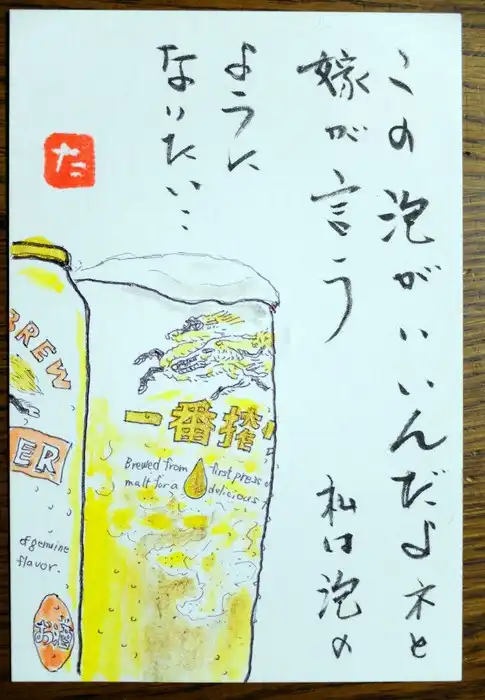 この泡がいいんだよネと
嫁が言う
私は泡の
ように
なりたい…
た
BREW
ER
of genuine
flavor.
お酒
一番搾り
Brewed from first press o
malt for a delicious